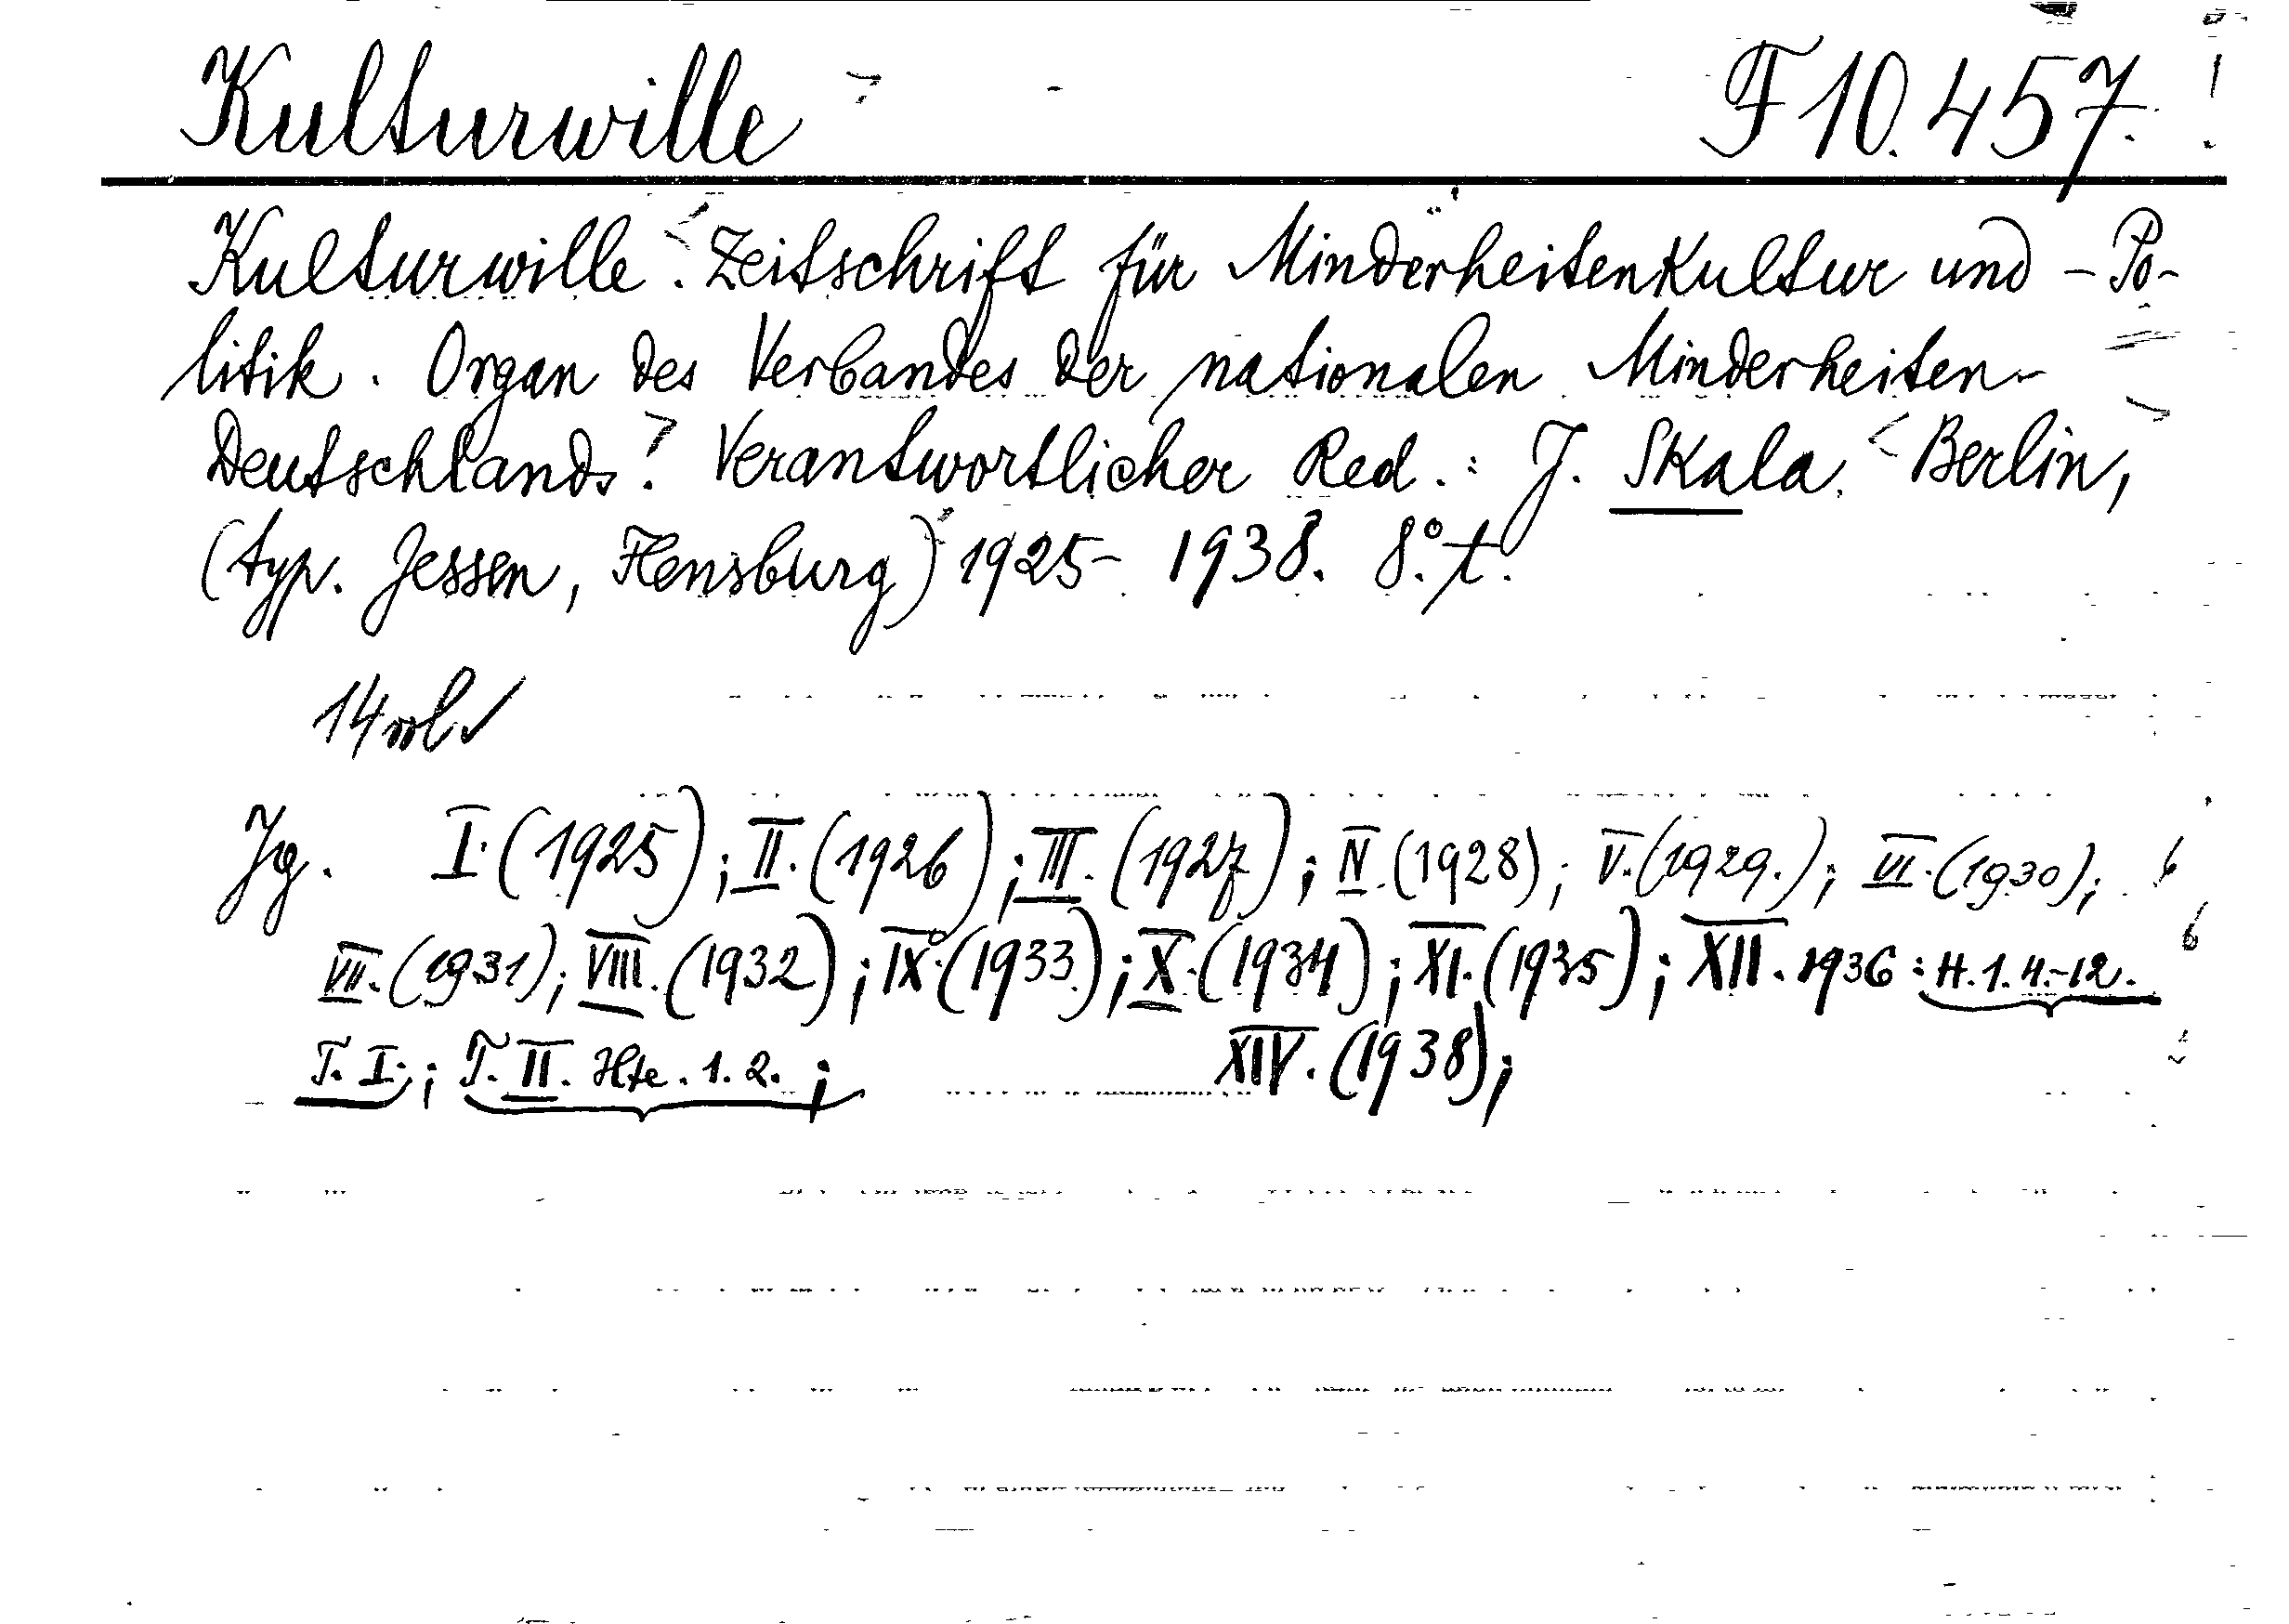 Kulturwille F 10.457.
Kulturwille. Zeitschrift für Minderheitenkultur und -Po-
litik. Organ des Verbandes der nationalen Minderheiten
Deutschlands. Verantwortlicher Red.: J. Skala. Berlin,
(typ. Jessen, Flensburg) 1925- 1938. 8° t.
14 vol
Jg. I. (1925); II. (1926); III. (1927); IV. (1928); V. (1929.); VI. (1930);
VII. (1931); VIII. (1932); IX. (1933); X. (1934); XI. (1935); XII. 1936: H. 1. 4.-12.
T. I.; T. II. Hfte. 1. 2.; XIV. (1938);